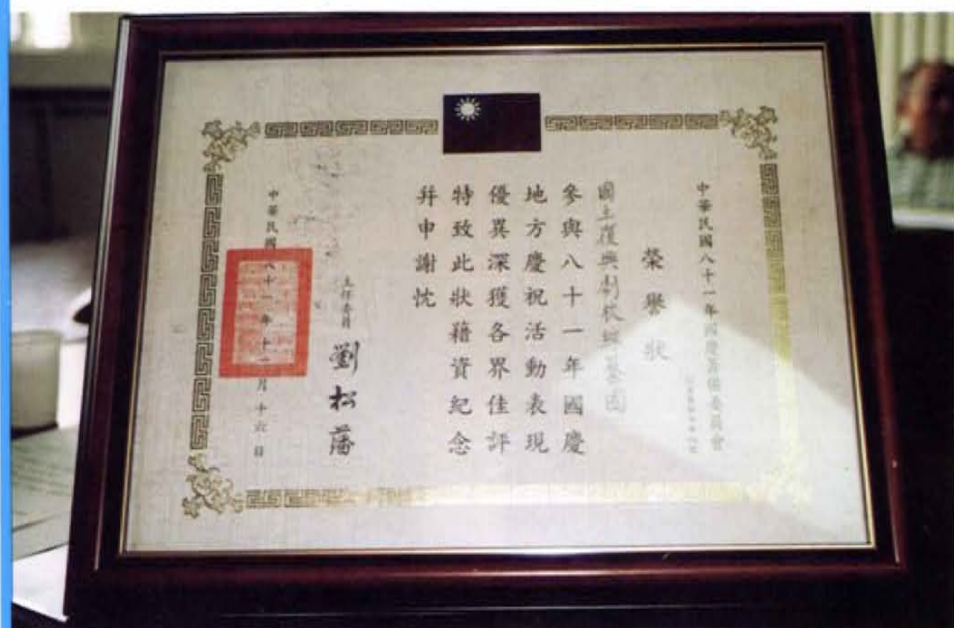 中華民國八十一年國慶籌備委員會
榮譽狀
國立復興劇校綜藝團
參與八十一年國慶
地方慶祝活動表現
優異深獲各界佳評
特致此狀藉資紀念
幷申謝忱
主任委員
劉松藩
中華民國八十一年十二月十六日